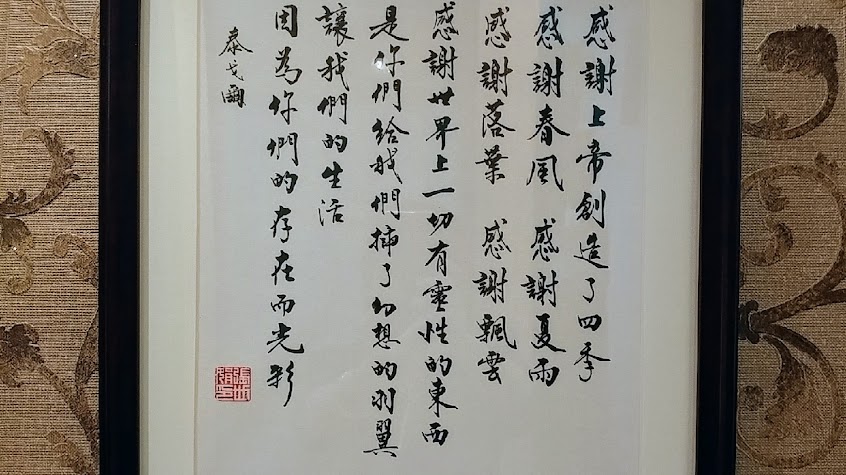 感謝上帝創造了四季
感謝春風 感謝夏雨
感謝落葉 感謝飄雲
感謝世界上一切有靈性的東西
是你們給我們插了幻想的羽翼
讓我們的生活
因為你們的存在而光彩
泰戈爾